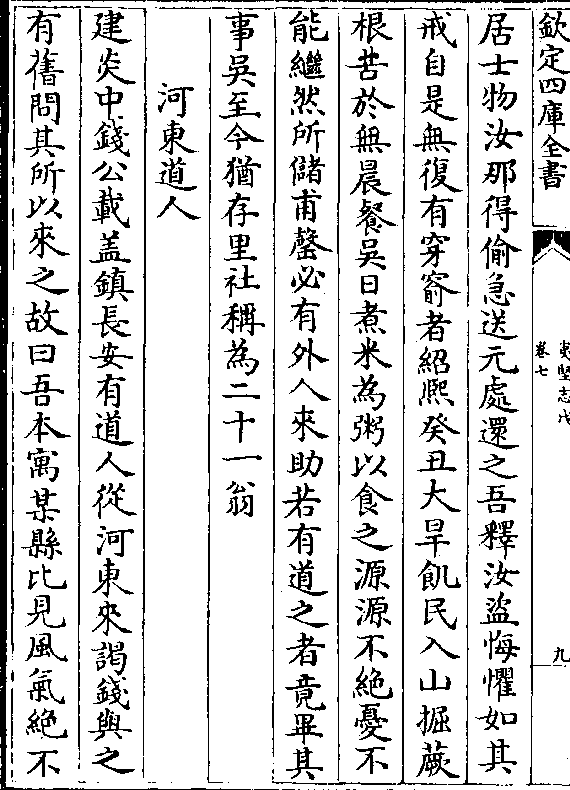 欽定四庫全書
夷堅志戊
卷七
九
居士物汝那得偷急送元處還之吾釋汝盜悔懼如其
戒自是無復有穿窬者紹熙癸丑大旱飢民入山掘蕨
根苦於無晨餐吳日煮米為粥以食之源源不絶憂不
能繼然所儲甫罄必有外人來助若有道之者竟畢其
事吳至今猶存里社稱為二十一翁
河東道人
建炎中錢公載盖鎮長安有道人從河東來謁錢與之
有舊問其所以來之故曰吾本寓某縣比見風氣絶不